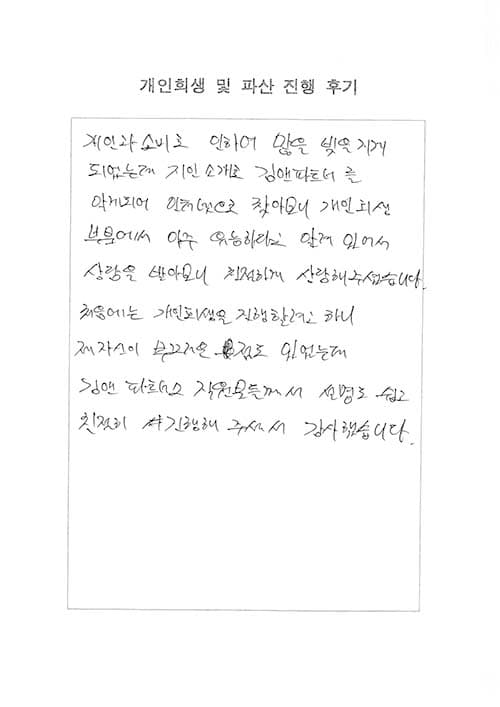 개인희생 및 파산 진행 후기
지인과 소비로 인하여 많은 빚을 지게
되었는데 지인 소개로 김앤파트너를
알게되어 인터넷으로 찾아보니 개인회생
부분에서 아주 유능하다고 알려 있어서
상담을 받아보니 친절하게 상담해주셨습니다.
처음에는 개인회생을 진행할려고 하니
제자신이 부끄러운 점도 있었는데
김앤 파트너스 직원분들께서 설명도 쉽고
친절히 진행해 주셔서 감사했습니다.